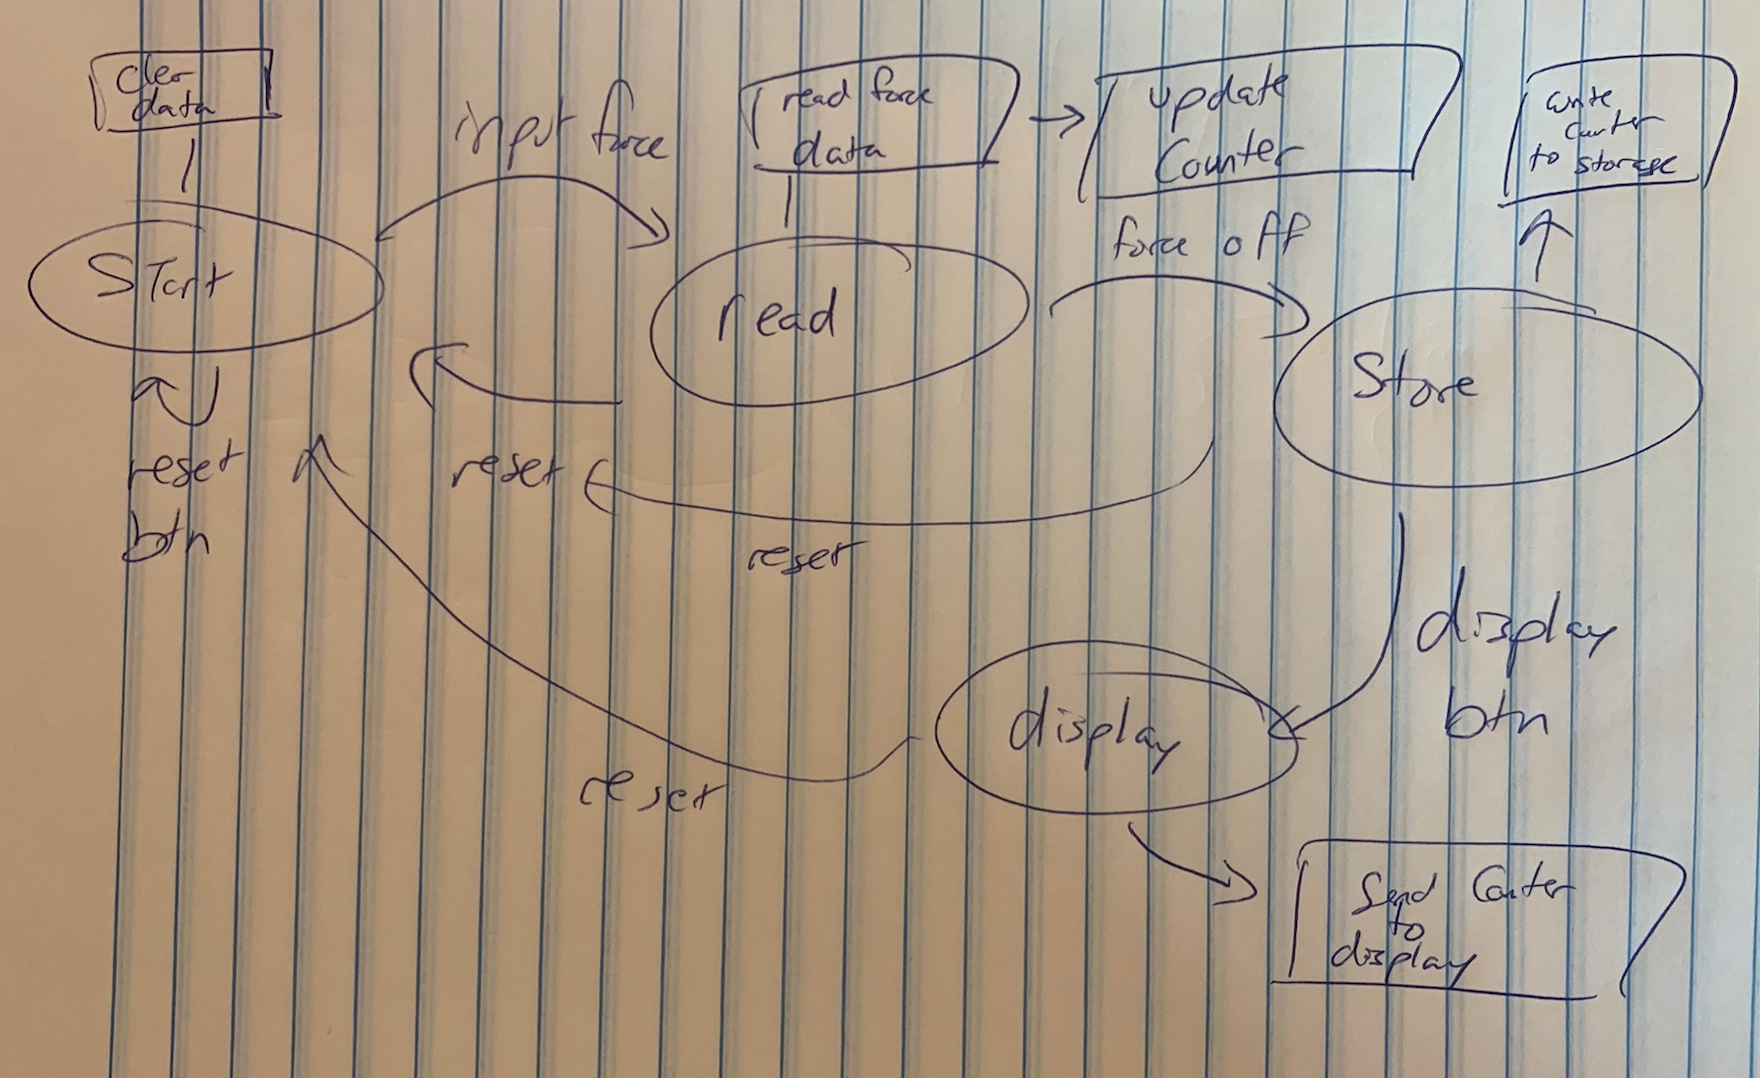 cler
data
input force
read force
data
update
Counter
write
counter
to storage
force off
Start
read
Store
reset
btn
reset
reset
display
btn
display
reset
Send Counter
to
display